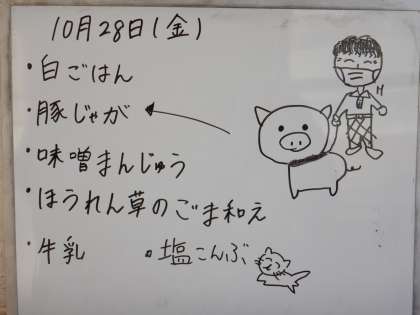 10月28日(金)
・白ごはん
・豚じゃが
・味噌まんじゅう
・ほうれん草のごま和え
・牛乳 。塩こんぶ
H